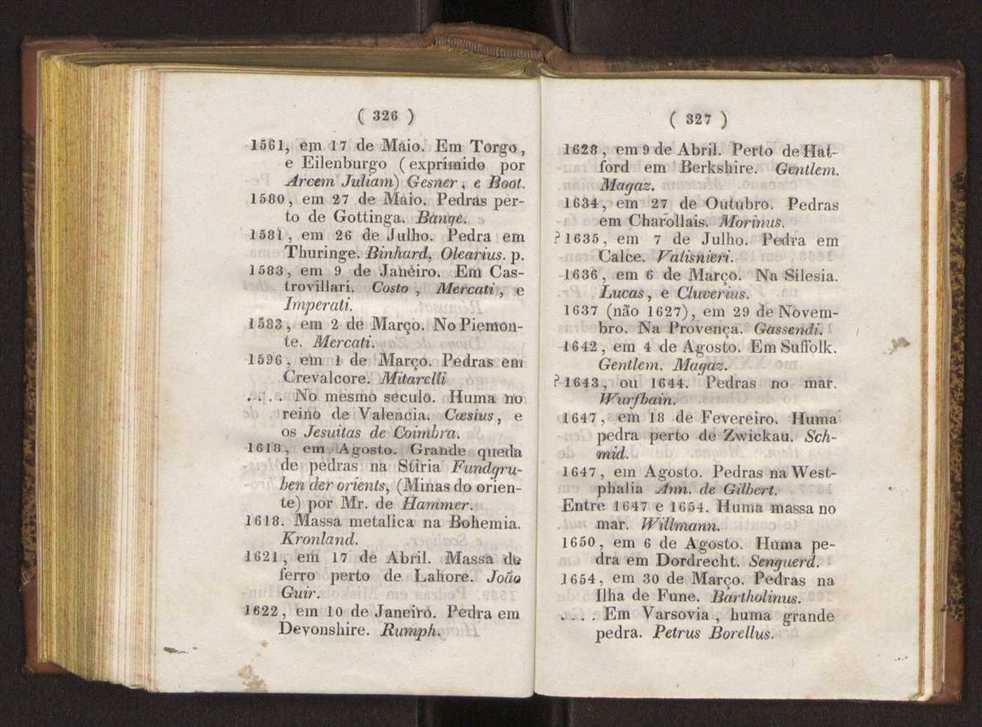 ( 326 )
1561, em 17 de Maio. Em Torgo,
e Eilenburgo (exprimido por
Arcem Juliam) Gesner, e Boot.
1580, em 27 de Maio. Pedras per-
to de Gottinga. Bange.
1581, em 26 de Julho. Pedra em
Thuringe. Binhard, Olearius. p.
1583, em 9 de Janeiro. Em Cas-
trovillari. Costo, Mercati, e
Imperati.
1583, em 2 de Março. No Piemon-
te. Mercati.
1596, em 1 de Março. Pedras em
Crevalcore. Mitarelli
.... No mesmo seculo. Huma no
reino de Valencia. Cæsius, e
os Jesuitas de Coimbra.
1618, em Agosto. Grande queda
de pedras na Stiria Fundgru-
ben der orients, (Minas do orien-
te) por Mr. de Hammer.
1618. Massa metalica na Bohemia.
Kronland.
1621, em 17 de Abril. Massa de
ferro perto de Lahore. João
Guir.
1622, em 10 de Janeiro. Pedra em
Devonshire. Rumph.
( 327 )
1628, em 9 de Abril. Perto de Hat-
ford em Berkshire. Gentlem.
Magaz.
1634, em 27 de Outubro. Pedras
em Charollais. Morinus.
? 1635, em 7 de Julho. Pedra em
Calce. Valisnieri.
1636, em 6 de Março. Na Silesia.
Lucas, e Cluverius.
1637 (não 1627), em 29 de Novem-
bro. Na Provença. Gassendi.
1642, em 4 de Agosto. Em Suffolk.
Gentlem. Magaz.
? 1643, ou 1644. Pedras no mar.
Wurfbain.
1647, em 18 de Fevereiro. Huma
pedra perto de Zwickau. Sch-
mid.
1647, em Agosto. Pedras na West-
phalia Ann. de Gilbert.
Entre 1647 e 1654. Huma massa no
mar. Willmann.
1650, em 6 de Agosto. Huma pe-
dra em Dordrecht. Senguerd.
1654, em 30 de Março. Pedras na
Ilha de Fune. Bartholinus.
.... Em Varsovia, huma grande
pedra. Petrus Borellus.